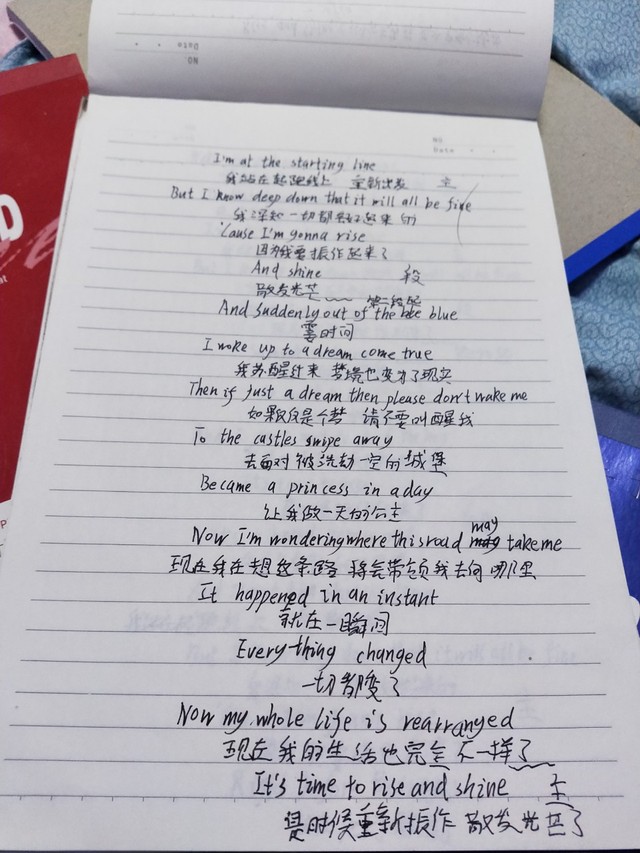 No
Date
I'm at the starting line
我站在起跑线上 重新出发 主
But I know deep down that it will all be fine
我深知一切都会好起来的
'Cause I'm gonna rise
因为我要振作起来了
And shine 段
散发光芒 第二段起
And suddenly out of the blue
霎时间
I woke up to a dream come true
我苏醒过来 梦境也变为了现实
Then if just a dream then please don't wake me
如果仅是个梦 请不要叫醒我
To the castles swipe away
去面对被洗劫一空的城堡
Became a princess in a day
让我做一天的公主
Now I'm wondering where this road may take me
现在我在想这条路将会带领我去向哪里
It happened in an instant
就在一瞬间
Everything changed
一切都变了
Now my whole life is rearranged
现在我的生活也完全不一样了
It's time to rise and shine 主
是时候重新振作 散发光芒了